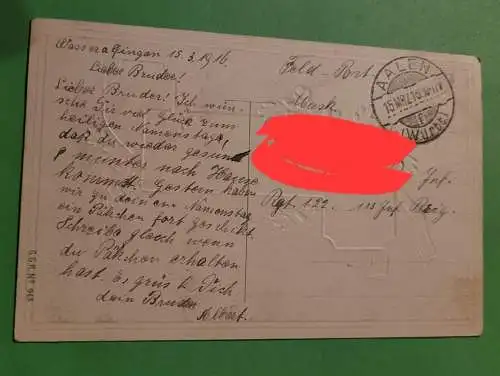 Wasseralfingen 15.3.1916.
Lieber Bruder!
Lieber Bruder! Ich wün-
sche Dir viel Glück zum
heiligen Namenstage,
daß du wieder gesund
& munter nach Hause
kommst. Gestern haben
wir zu deinem Namenstag
ein Päkchen fort geschickt.
Schreibe gleich wenn
du Päkchen erhalten
hast. Es grüs t Dich
dein Bruder
Albert.
Feld-Post
Musk.
Inf.
Rgt. 122.
AALEN
(WÜRTT.)